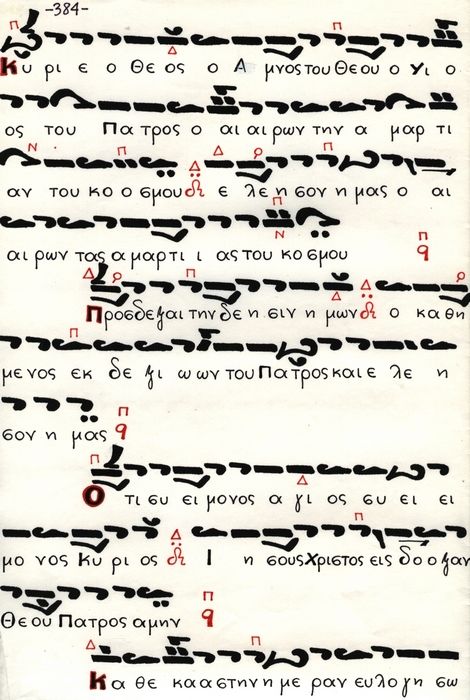 -384-
Κυ ρι ε ο Θε ος ο Α μνος του Θεου ο γι ο
ος του Πα τρος ο αι αι ρων την α μαρ τι
αν του κο ο σμου ε λε η σον η μας ο αι
αι ρων τας α μαρτι ι ας του κο σμου
Προσδεξαι την δε η σιν η μων ο κα θη
με νος εκ δε ξι ω ων του Πα τρος και ε λε η
σον η μας
Ο τι συ ει μονος α γι ος συ ει ει
μο νος Κυ ρι ος Ι η σους Χριστος εις δο ο ξαν
Θε ου Πατρος α μην
Κα θε κα αστην η με ραν ευ λο γη σω